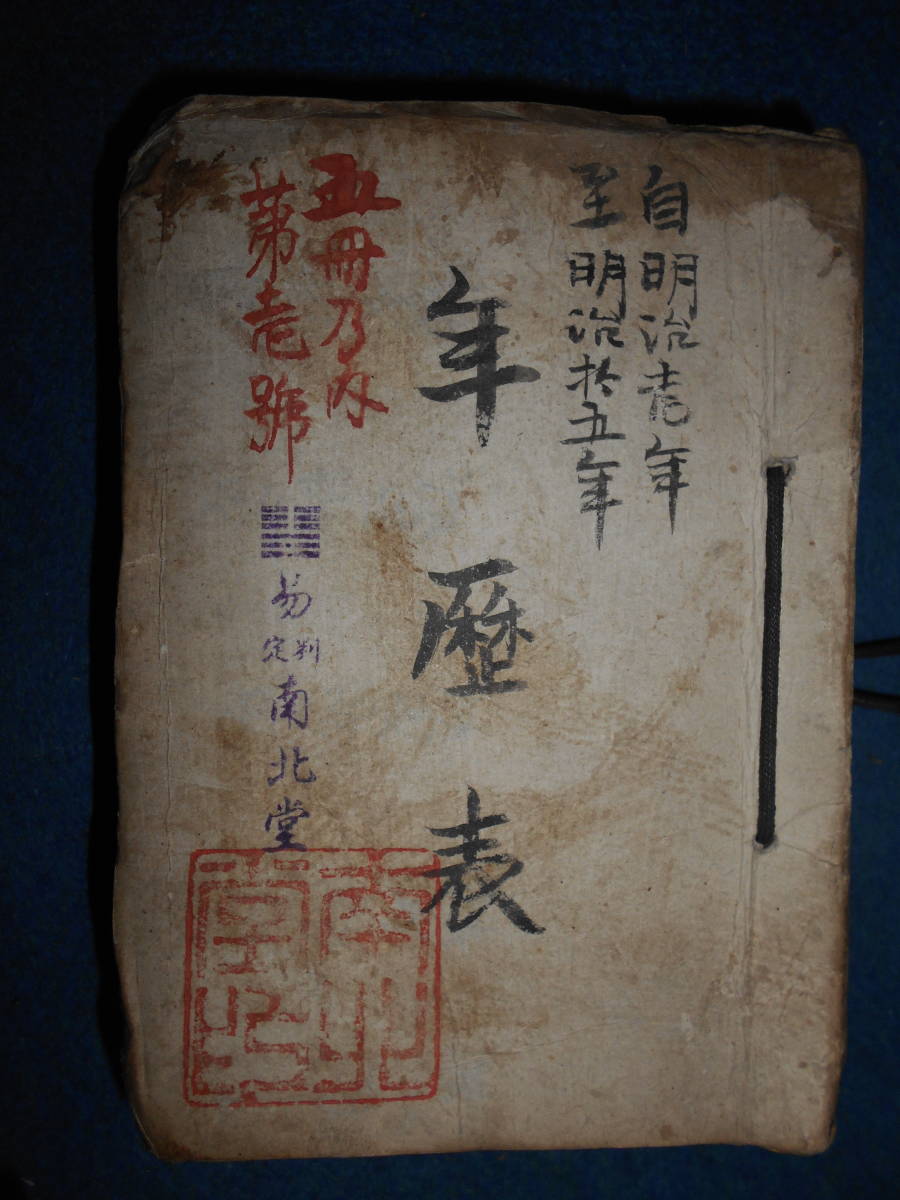 自明治壱年
至明治拾五年
年歷表
五冊乃内
第壱號
易
判定
南北堂
南北
堂印